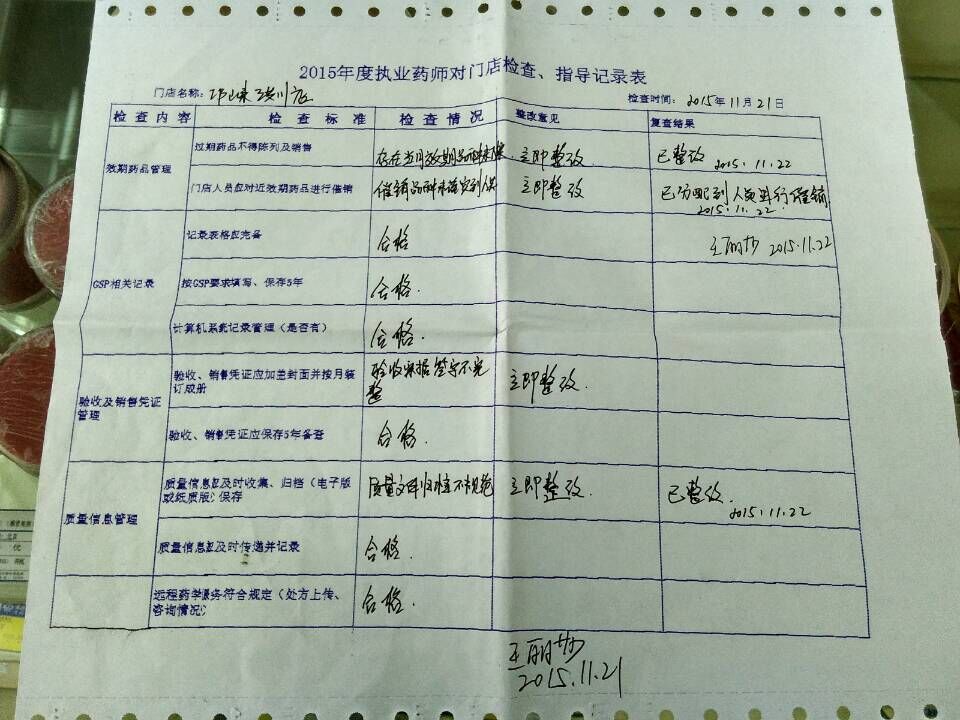 2015年度执业药师对门店检查、指导记录表
门店名称: 邛崃 店
检查时间: 2015年11月21日
检查内容 检查标准 检查情况 整改意见 复查结果
效期药品管理
过期药品不得陈列及销售 存在当月效期品种未 立即整改 已整改
2015.11.22
门店人员应对近效期药品进行催销 催销品种未落实到人员 立即整改 已分配到人员进行催销
2015.11.22
GSP相关记录
记录表格应完备 合格 王丽莎 2015.11.22
按GSP要求填写、保存5年 合格.
计算机系统记录管理(是否有) 合格.
验收及销售凭证
管理
验收、销售凭证应加盖封面并按月装
订成册
验收票据签字不完
整
立即整改.
验收、销售凭证应保存5年备查 合格.
质量信息管理
质量信息应及时收集、归档(电子版
或纸质版)保存
质量文件归档不规范 立即整改. 已整改.
2015.11.22
质量信息应及时传递并记录 合格.
远程药学服务符合规定(处方上传、
咨询情况)
合格.
王丽莎
2015.11.21